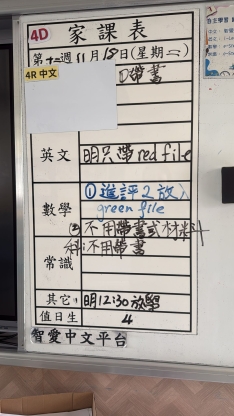 4D 家課表
第十一週11月18日(星期二)
4R 中文
①帶書
英文 明只帶red file
數學 ①進評2放入
green file
② 不用帶書或材料
科:不用帶書
常識
其它 明12:30放學
值日生 4
智愛中文平台